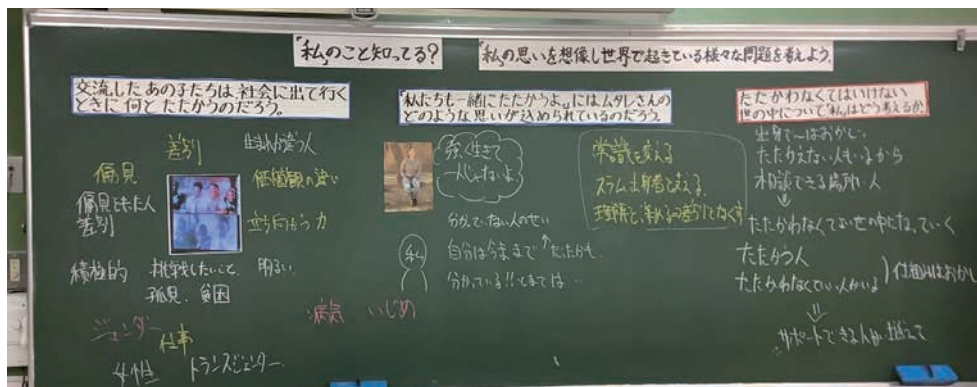 「私」のこと知ってる?
「私」の思いを想像し世界で起きている様々な問題を考えよう。
交流したあの子たちは社会に出て行く
ときに何とたたかうのだろう。
差別
生まれが違う人
偏見
価値観の違い
偏見をもった人
差別
立ち向かう力
積極的
挑戦したいこと
明るい
孤児、貧困
ジェンダー
仕事
女性
トランスジェンダー
病気
いじめ
「私たちも一緒にたたかうよ。」にはムタレさんの
どのような思いが込められているのだろう。
強く生きて
一人じゃないよ
分かっていない人のせい
私
自分は今まで
分かっている!!
常識を変える
スラム出身者を支える
たたかわなくてはいけない
世の中について「私」はどう考えるか。
出身で〜はおかしい
たたかえない人もいるから
相談できる場所、人
たたかわなくてよい世の中になっていく
たたかう人
たたかわなくていい人がいる
仕組みはおかし
サポートできる人が増えて